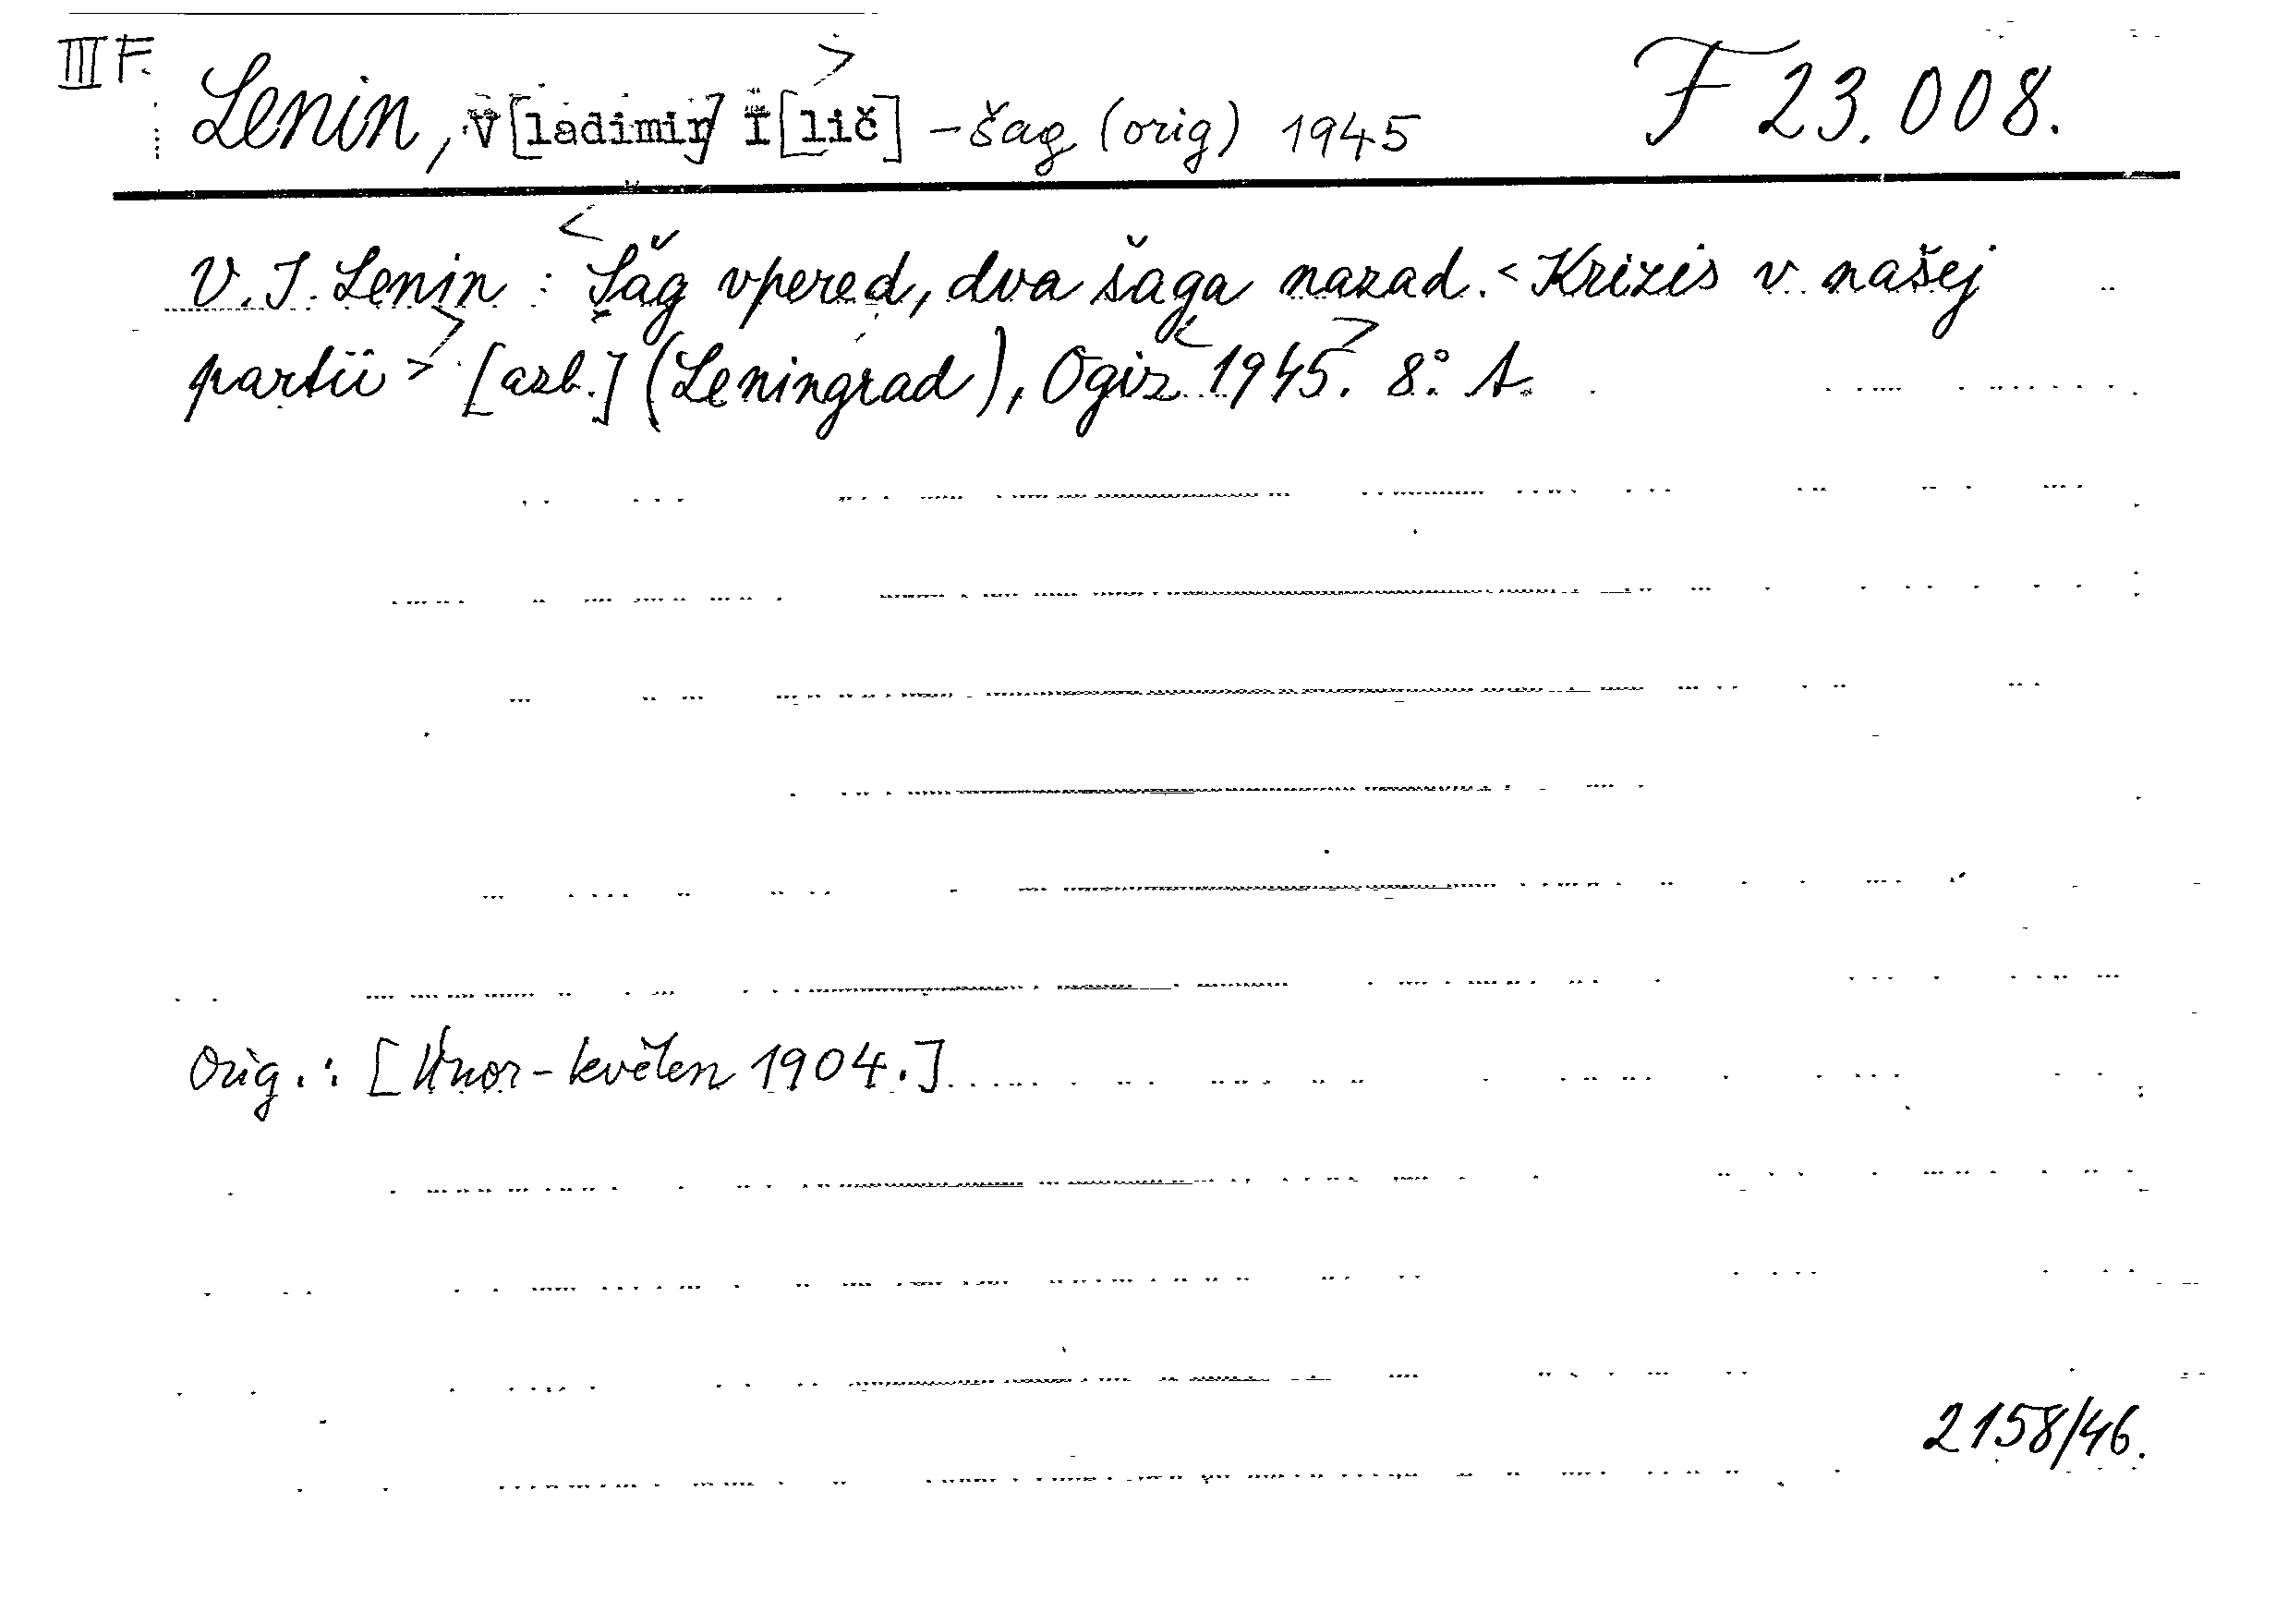 III F.
Lenin, V[ladimir] I[lič] - šag (orig) 1945 F 23.008.
V. I. Lenin : Šag vpered, dva šaga nazad. < Krizis v našej
partii > [azb.] (Leningrad), Ogiz 1945. 8°. A.
Orig.: [Únor - květen 1904.]
2158/46.